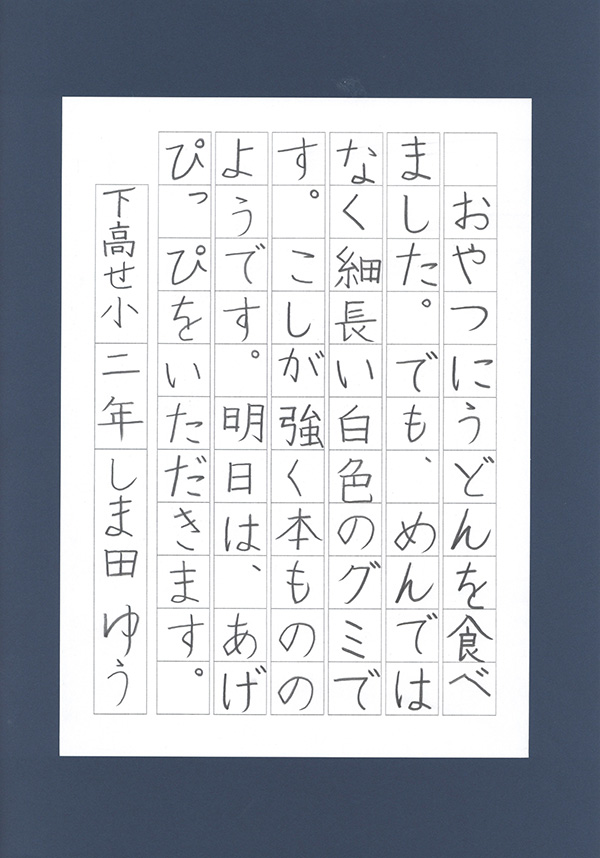 おやつにうどんを食べ
ました。でも、めんでは
なく細長い白色のグミで
す。こしが強く本ものの
ようです。明日は、あげ
ぴっぴをいただきます。
下高せ小 二年 しま田 ゆう